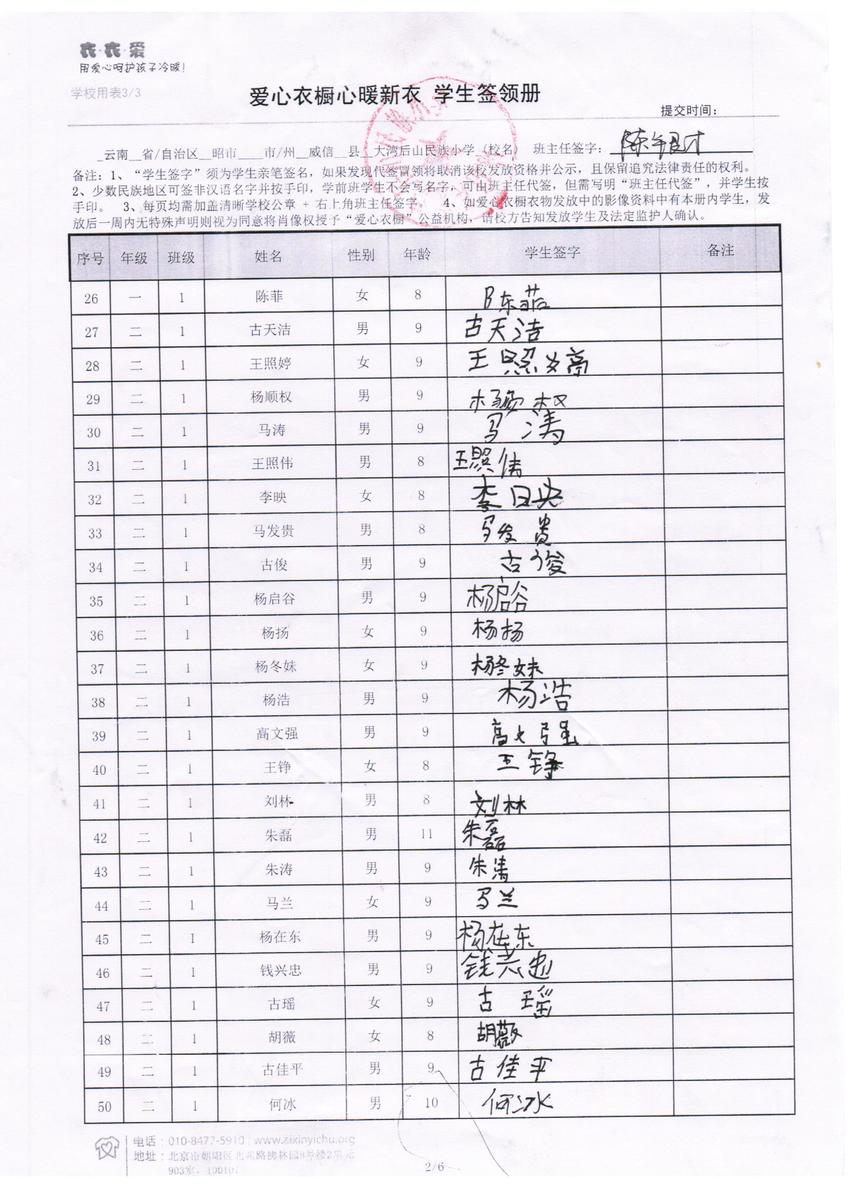 衣·衣·爱
用爱心呵护孩子冷暖!
学校用表3/3
爱心衣橱心暖新衣 学生签领册
提交时间:
云南__省/自治区__昭市____市/州__威信__县__大湾后山民族小学(校名) 班主任签字:
备注:1、“学生签字”须为学生亲笔签名,如果发现代签冒领将取消该校发放资格并公示,且保留追究法律责任的权利。
2、少数民族地区可签非汉语名字并按手印,学前班学生不会写名字,可由班主任代签,但需写明“班主任代签”,并学生按
手印。 3、每页均需加盖清晰学校公章 + 右上角班主任签字。 4、如爱心衣橱衣物发放中的影像资料中有本册内学生,发
放后一周内无特殊声明则视为同意将肖像权授予“爱心衣橱”公益机构,请校方告知发放学生及法定监护人确认。
序号 年级 班级 姓名 性别 年龄 学生签字 备注
26 一 1 陈菲 女 8 陈菲
27 二 1 古天洁 男 9 古天洁
28 二 1 王照婷 女 9 王照婷
29 二 1 杨顺权 男 9 杨顺权
30 二 1 马涛 男 9 马涛
31 二 1 王照伟 男 8 王照伟
32 二 1 李映 女 8 李映
33 二 1 马发贵 男 8 马发贵
34 二 1 古俊 男 9 古俊
35 二 1 杨启谷 男 9 杨启谷
36 二 1 杨扬 女 9 杨扬
37 二 1 杨冬妹 女 9 杨冬妹
38 二 1 杨浩 男 9 杨浩
39 二 1 高文强 男 9 高文强
40 二 1 王铮 女 8 王铮
41 二 1 刘林 男 8 刘林
42 二 1 朱磊 男 11 朱磊
43 二 1 朱涛 男 9 朱涛
44 二 1 马兰 女 9 马兰
45 二 1 杨在东 男 9 杨在东
46 二 1 钱兴忠 男 9 钱兴忠
47 二 1 古瑶 女 9 古瑶
48 二 1 胡薇 女 8 胡薇
49 二 1 古佳平 男 9 古佳平
50 二 1 何冰 男 10 何冰
电话:010-8477-5910 | www.zixinyichu.org
地址:北京市朝阳区
903室,100102
2/6